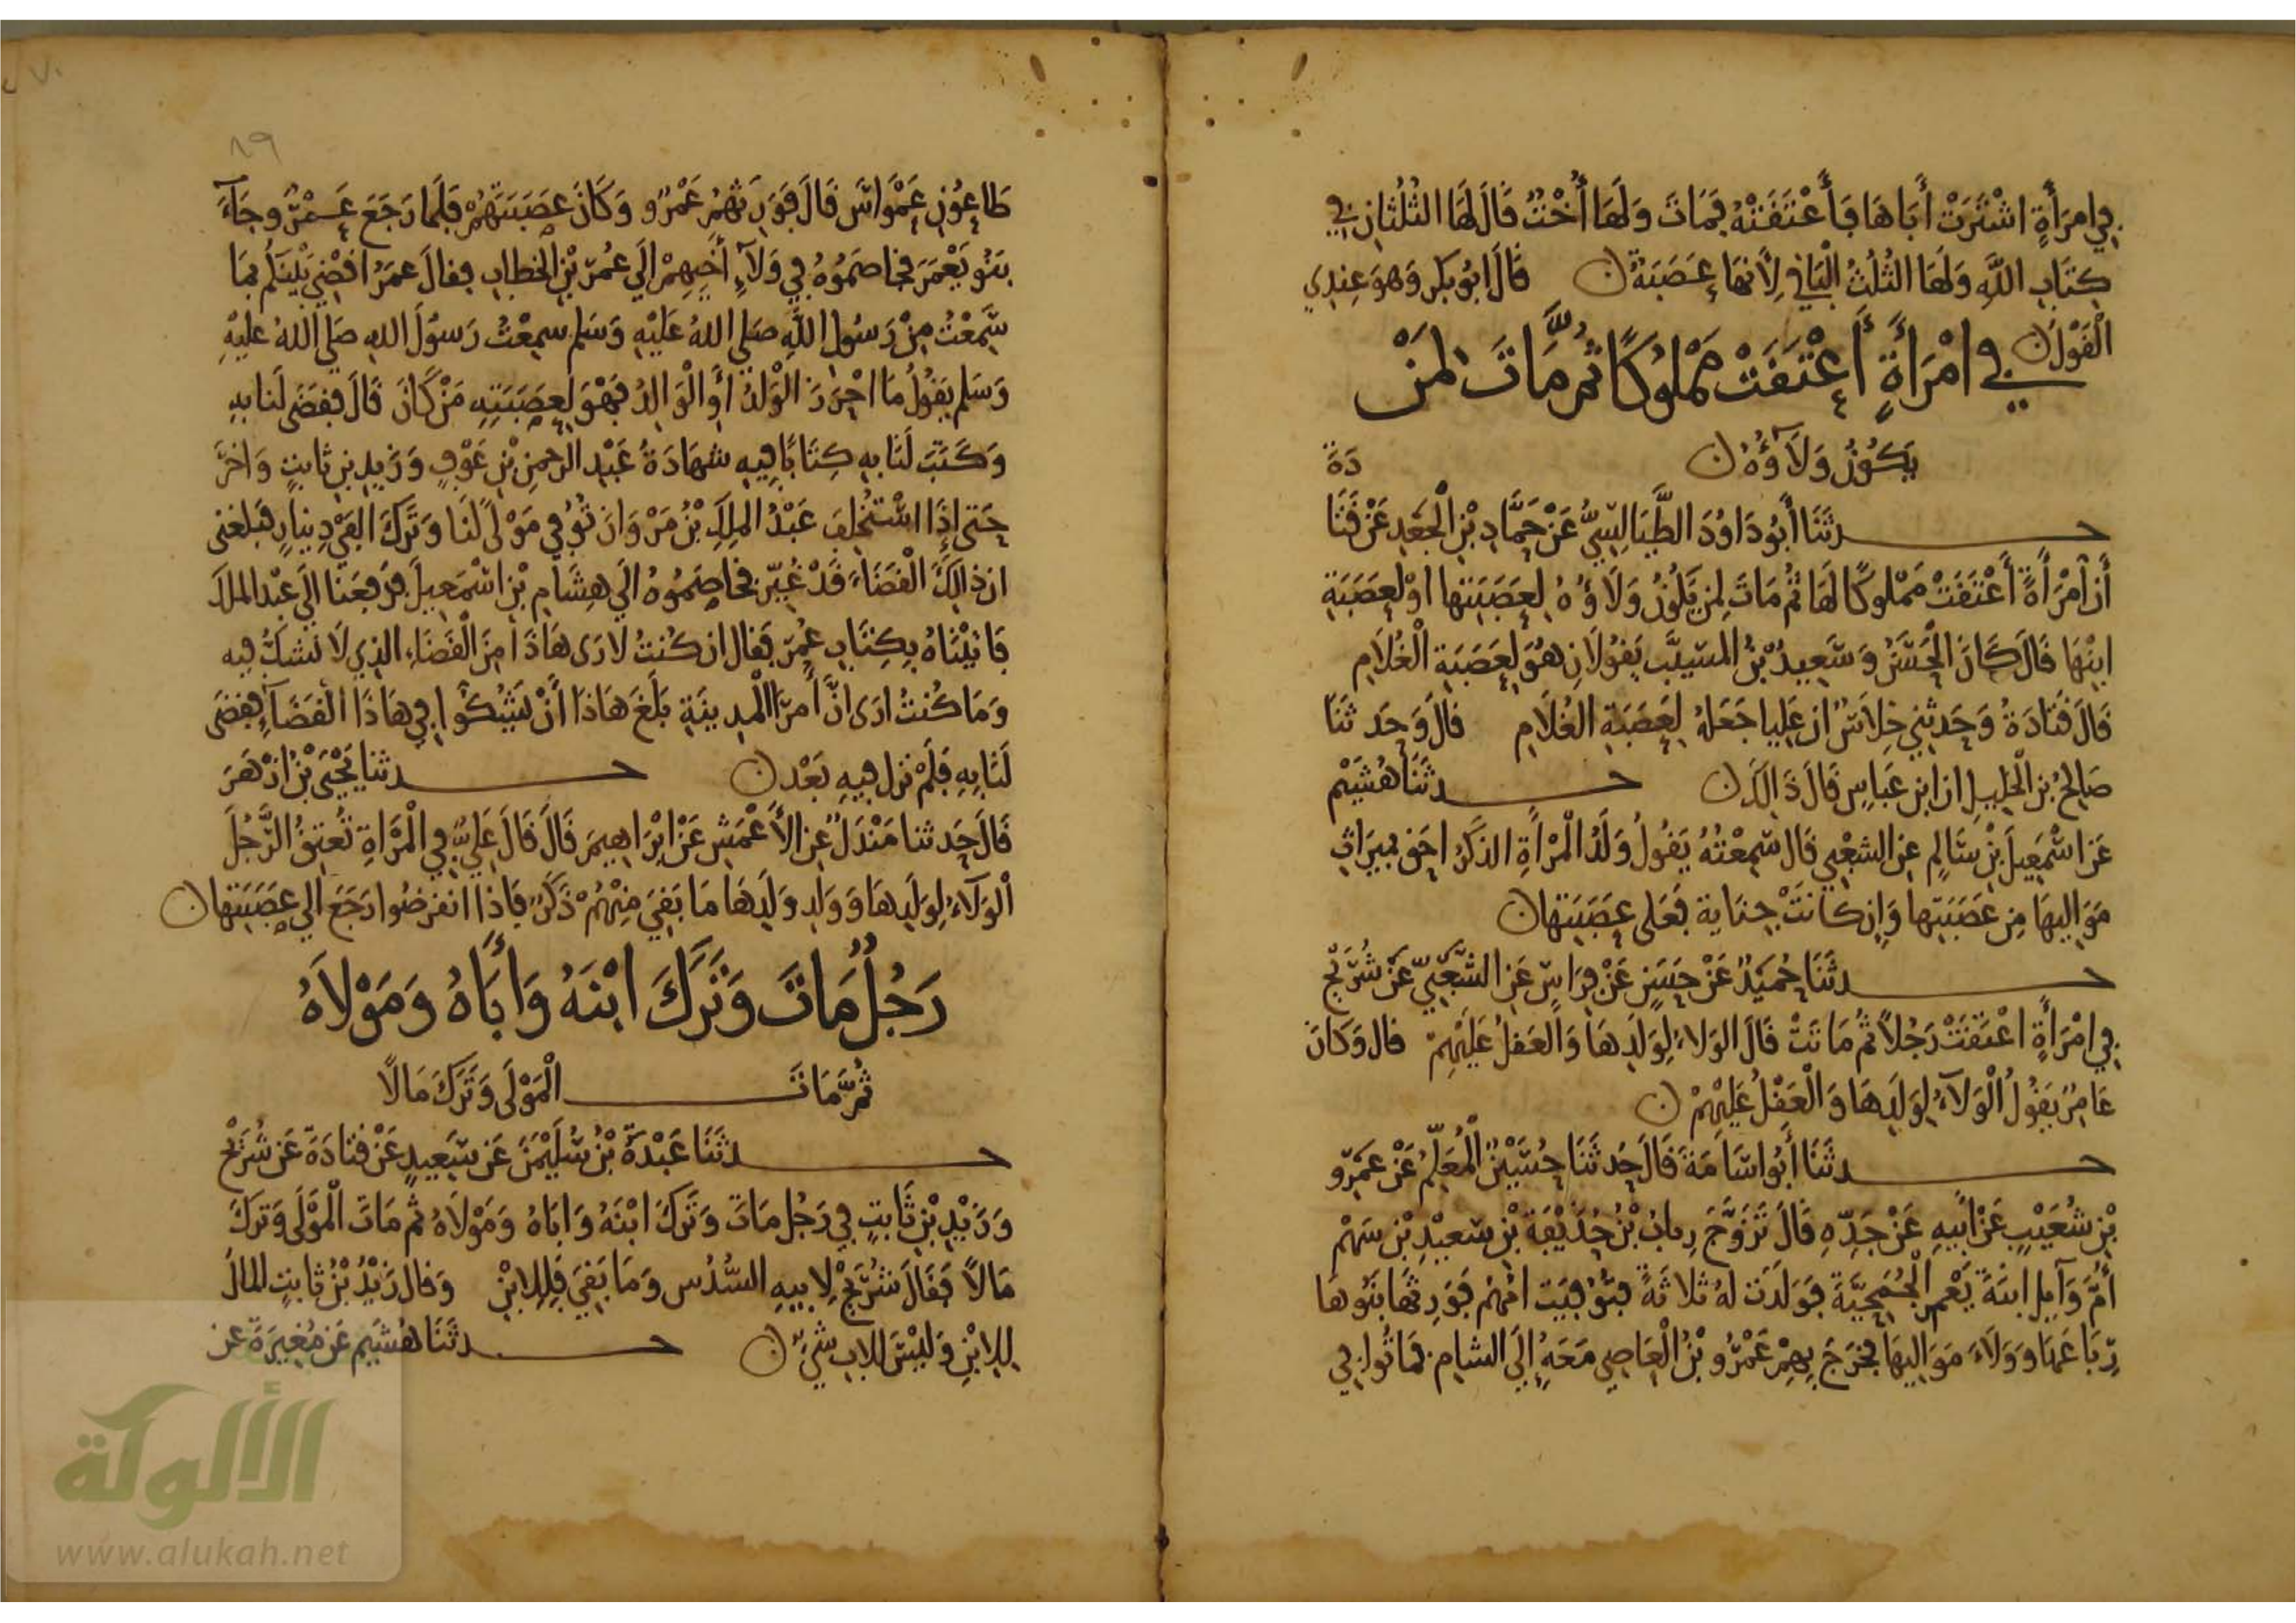 في امرأة اشترت أباها فأعتقته فمات ولها أخت قال لها الثلثان في
كتاب الله ولها الثلث الباقي لأنها عصبة ن قال ابو بكر وهو عندي
القول ن
في امرأة أعتقت مملوكا ثم مات لمن
يكون ولاؤه ن
دة
حدثنا أبو داود الطيالسي عن حماد بن الجعد عن قتا
أن امرأة أعتقت مملوكا لها ثم مات لمن يكون ولاؤه لعصبتها او لعصبة
ابنها قال كان الحسن وسعيد بن المسيب يقولان هو لعصبة الغلام
قال قتادة وحدثني خلاس ان عليا جعله لعصبة الغلام قال وحدثنا
صالح بن الخليل ان ابن عباس قال ذالك ن حدثنا هشيم
عن اسمعيل بن سالم عن الشعبي قال سمعته يقول ولد المرأة الذكر احق بميراث
مواليها من عصبتها وإن كانت جناية فعلى عصبتها ن
حدثنا حميد عن حسن عن فراس عن الشعبي عن شريح
في امرأة اعتقت رجلا ثم ماتت قال الولاء لولدها والعقل عليهم قال وكان
عامر يقول الولاء لولدها والعقل عليهم ن
حدثنا أبو اسامة قال حدثنا حسين المعلم عن عمرو
بن شعيب عن أبيه عن جده قال تزوج رباب بن حذيفة بن سعيد بن سهم
أم وآيل ابنة يعمر الجمحية فولدت له ثلاثة فتوفيت امهم فورثها بنوها
رباعها وولاء مواليها فخرج بهم عمرو بن العاصي معه إلى الشام فماتوا في
٨٩
طاعون عمواس قال فورثهم عمرو وكان عصبتهم فلما رجع عمرو جاء
بنو يعمر فخاصموه في ولاء أخيهم الى عمر بن الخطاب فقال عمر اقضي بينكم بما
سمعت من رسول الله صلى الله عليه وسلم سمعت رسول الله صلى الله عليه
وسلم يقول ما احرز الولد أو الوالد فهو لعصبته من كان قال فقضى لنا به
وكتب لنا به كتابا فيه شهادة عبد الرحمن بن عوف وزيد بن ثابت واخر
حتى إذا استخلف عبد الملك بن مروان توفي مولى لنا وترك الفي دينار فبلغني
ان ذالك القضاء قد غير فخاصموه الى هشام بن اسمعيل فرفعنا الى عبد الملك
فاتيناه بكتاب عمر فقال ان كنت لارى هاذا من القضاء الذي لا نشك فيه
وما كنت ارى ان أمر المدينة بلغ هاذا أن يشكوا في هاذا القضاء فقضى
لنا به فلم نزل فيه بعد ن حدثنا يحيى بن ازهر
قال حدثنا مندل عن الأعمش عن ابراهيم قال قال علي في المرأة تعتق الرجل
الولاء لولدها وولد ولدها ما بقي منهم ذكر فاذا انقرضوا رجع الى عصبتها ن
رجل مات وترك ابنه وأباه ومولاه
ثم مات المولى وترك مالا
حدثنا عبدة بن سليمن عن سعيد عن قتادة عن شريح
وزيد بن ثابت في رجل مات وترك ابنه واباه ومولاه ثم مات المولى وترك
مالا فقال شريح لابيه السدس وما بقي فللابن وقال زيد بن ثابت المال
للابن وليس للاب شيء ن حدثنا هشيم عن مغيرة عن
الألوكة
www.alukah.net